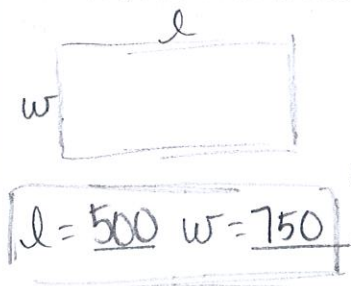 l
w
l = 500 w = 750